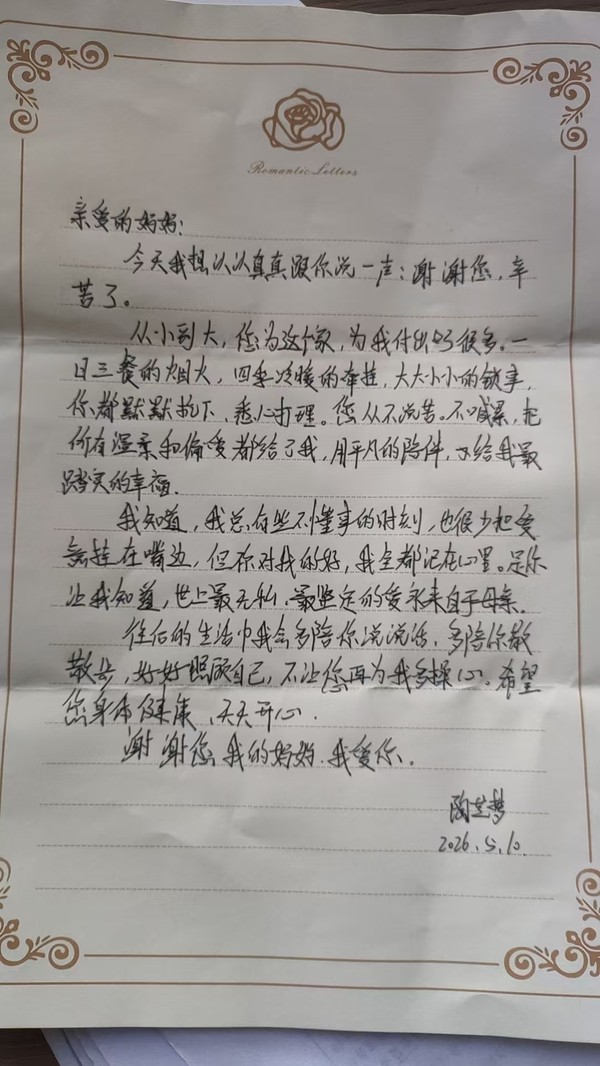 Romantic Letters
亲爱的妈妈:
今天我想认认真真跟你说一声:谢谢您,辛
苦了。
从小到大,您为这个家,为我付出了很多。一
日三餐的烟火,四季冷暖的牵挂,大大小小的琐事,
你都默默扛下,悉心打理。您从不说苦。不喊累,把
所有温柔和偏爱都给了我,用平凡的陪伴,给我最
踏实的幸福.
我知道,我总有些不懂事的时刻,也很少把爱
挂在嘴边,但你对我的好,我全都记在心里。是你
让我知道,世上最无私.最坚定的爱永来自于母亲.
往后的生活中我会多陪你说说话.多陪你散
散步,好好照顾自己,不让您再为我多操心.希望
您身体健康、天天开心.
谢谢您我的妈妈.我爱你。
陶芝梦
2026.5.10.